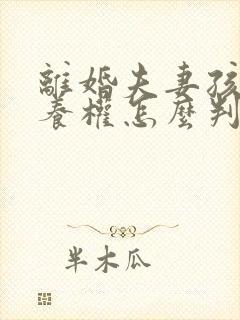 離婚夫妻孩
養權怎麼判
半木瓜